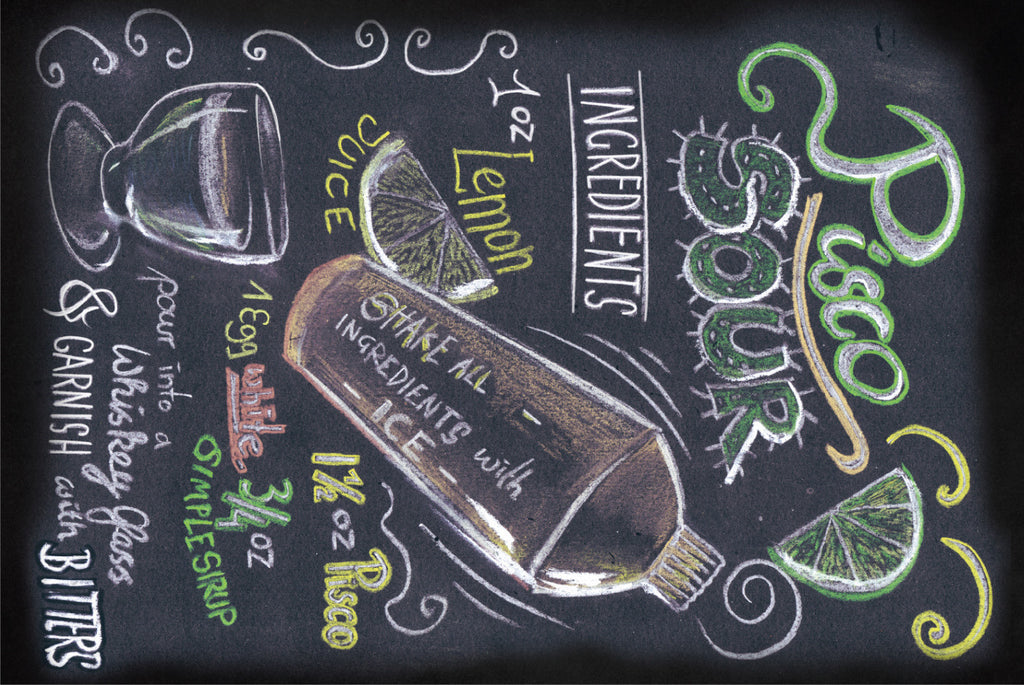 Pisco
SOUR
INGREDIENTS
1 oz Lemon
JUICE
SHAKE ALL
INGREDIENTS with
- ICE -
1½ oz Pisco
1 Egg white
3/4 oz
SIMPLE SIRUP
pour into a
Whiskey Glass
& GARNISH with BITTERS